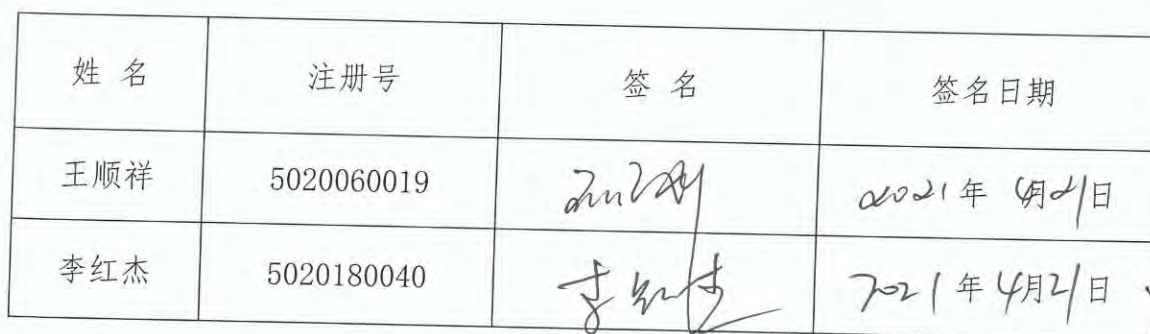 姓 名 注册号 签 名 签名日期
王顺祥 5020060019 2021年 4月21日
李红杰 5020180040 李红杰 2021年4月21日